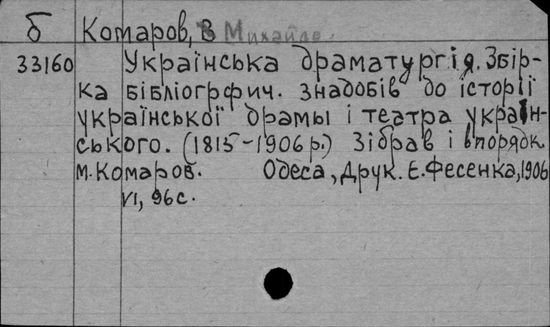 б Комаров, В Михайло.
33160 Українська драматургія. Збір-
ка бібліогрфич. знадобів до історії
української драмы і театра україн-
ського. (1815-1906 р.) Зібрав і впорядк
М. Комаров. Одеса, друк. Е. Фесенка, 1906
VI, 96 с.